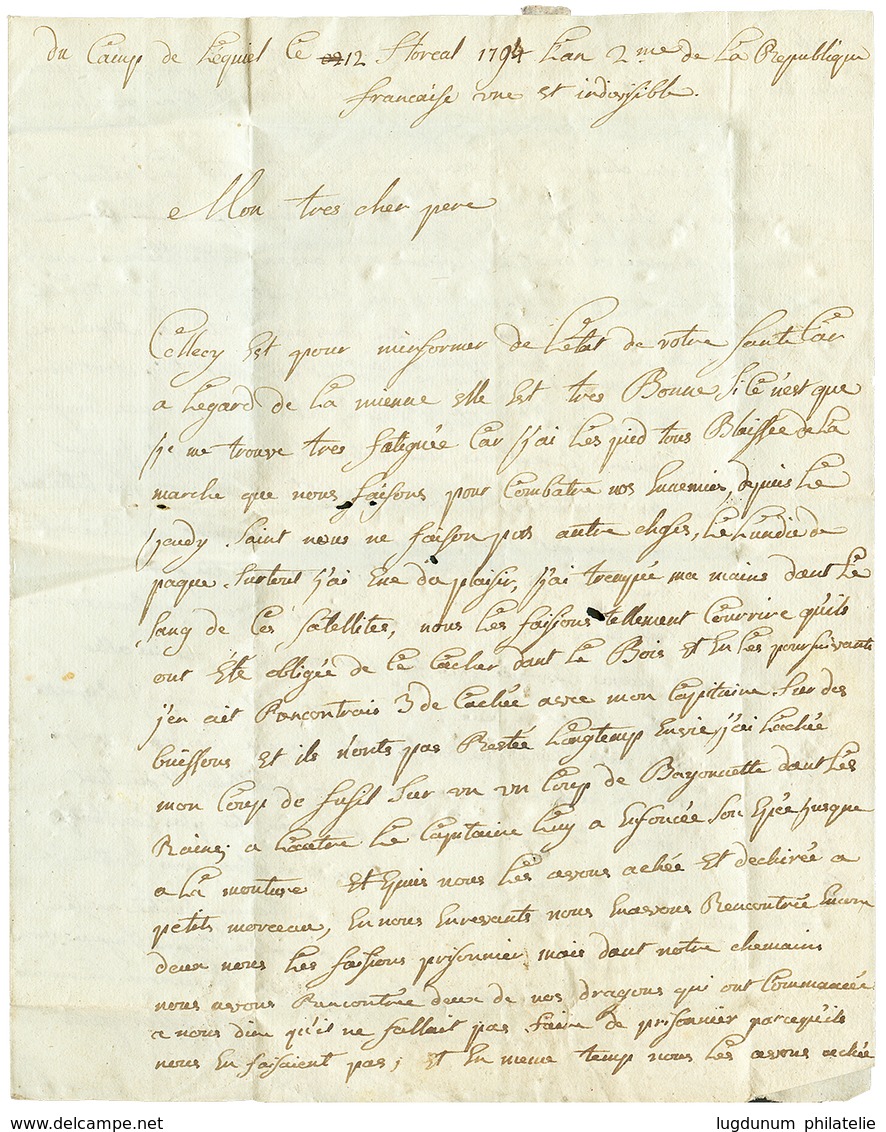 du Camp de Lequiel Ce 12 floreal 1794 Lan 2me de La Republique
francaise une et indivisible.
Mon tres cher pere
Cellecy Est pour minformer de L'état de votre santé Car
a Legard de La mienne elle Est tres Bonne Si Ce n'est que
je me trouve tres fatiguée Car j'ai Les pied tous Blaissée de La
marche que nous faisons pour Combatre nos Ennemies, depuis Le
jeudy Saint nous ne faison pas autre choses, Le Lundie de
paque Surtout j'ai Eue du plaisir, j'ai trempée ma mains dant Le
sang de Ces satellites, nous Les faisions tellement Courrire qu'ils
ont Eté obligée de Ce Cacher dant Le Bois et En Les poursuivants
j'en ait Rencontrais 3 de Cachée avec mon Capitaine Sur des
buissons Et ils n'onts pas Restée Longtemp Envie, j'ai Lachée
mon Coup de fusil Sur un un Coup de Bayonnette dant Les
Raine, a Lautre Le Capitaine Luy a Enfoncée Son Epée jusque
a La monture Et Epuis nous Les avons achée Et dechirée a
petits morceau, En nous Enrevants nous Enavons Rencontrée Encore
deux nous Les faisions prisonnier mais dant notre chemains
nous avons Rencontrée deux de nos dragons qui ont Commancée
a nous dire qu'il ne fallait pas faire de prisonnier parcequ'ils
nous En faisaient pas ; Et En meme temp nous Les avons achée
www.delcampe.net
lugdunum philatelie